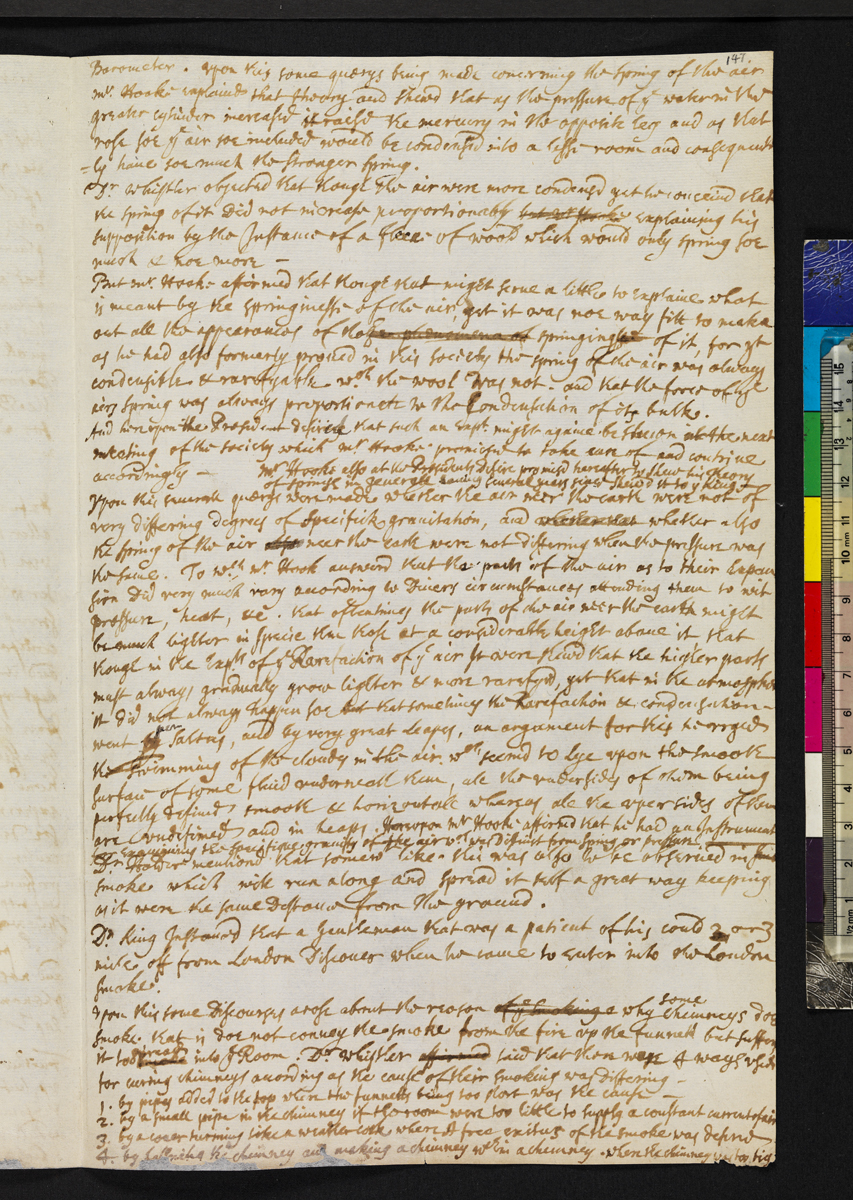 147.
Barometer. Upon this some querys being made concerning the Spring of the air
mr. Hooke explained that theory and shewd that as the pressure of ye water in the
greater cylinder increased it raisd the mercury in the opposite leg and as that
rose soe ye air soe included would be condensed into a lesse roome and consequent
=ly have soe much the stronger spring.
Dr. Whistler objected that though the air were more condensed yet he conceived that
the spring of it did not increase proportionably but mr Hooke explaining his
supposition by the Instance of a fleece of wool which would only spring soe
much & noe more —
But mr. Hooke affirmed that though that might serve a little to explaine what
is meant by the springinesse of the air, yet it was noe way fitt to make
out all the appearances of those phenomena of springing of it, for yt
as he had also formerly proved in this society the spring of the air was always
condensible & rarefyable wch the wool was not. and that the force of the
airs spring was always proportionate to the Condensation of its bulk.
And hereupon the President desired that such an Expt. might againe be shewn at the next
meeting of the society which mr. Hooke promised to take care of and contrive
accordingly —
mr Hooke also at the Presidents desire promised hereafter to shew his theory
of springs in generall having severall years since shew'd it to ye King
Upon this severall querys were made whether the air neer the earth were not of
very differing degrees of specifick gravitation, and whether that whether also
the spring of the air also neer the earth were not differing when the pressure was
the same. To wch mr Hook answerd that the parts of the air as to their Expan
sion did very much vary according to Divers circumstances attending them to wit
pressure, heat, &c. that oftentimes the parts of the air neer the earth might
be much lighter in specie then those at a considerable height above it that
though in the Expts of ye Rarefaction of ye air It were shewd that the higher parts
must always gradually grow lighter & more rarefyd, yet that in the atmosphere
it did not always happen soe but that sometimes the Rarefaction & condensation
went per Saltus, and by very great leapes, an argument for this he urged
the swimming of the clouds in the air wch seemd to lye upon the smooth
surface of some fluid underneath them, all the undersides of them being
perfectly defined smooth & horizontall whereas all the upper sides of them
are undefined and in heaps. Hereupon mr Hooke affirmed that he had an Instrument
for Examining the specifique gravity of the air wch was distinct from spring or pressure.
Dr. Holder mentioned that somew like this was also to be observed in
smoke which will run along and spread it self a great way keeping
as it were the same Distance from the ground.
Dr. King Instanced that a gentleman that was a patient of his could 2 or 3
mile off from London Discover when he came to Enter into the London
smoke.
Upon this some Discourses arose about the reason of ye smoking why some chimneys doe
smoke. that is doe not convey the smoke from the fire up the funnell but suffer
it to spread into ye Room. Dr. Whistler affirmed said that there were 4 ways used
for curing chimneys according as the cause of their smoking was differing —
1. by pipes added to the top when the funnells being too short was the cause —
2. by a small pipe in the chimney if the room were too little to supply a constant current of air
3. by a cover turning like a weather cock where ye free exitus of the smoke was defined
4. by the chimney and making a chimney within a chimney. when the chimney was too big